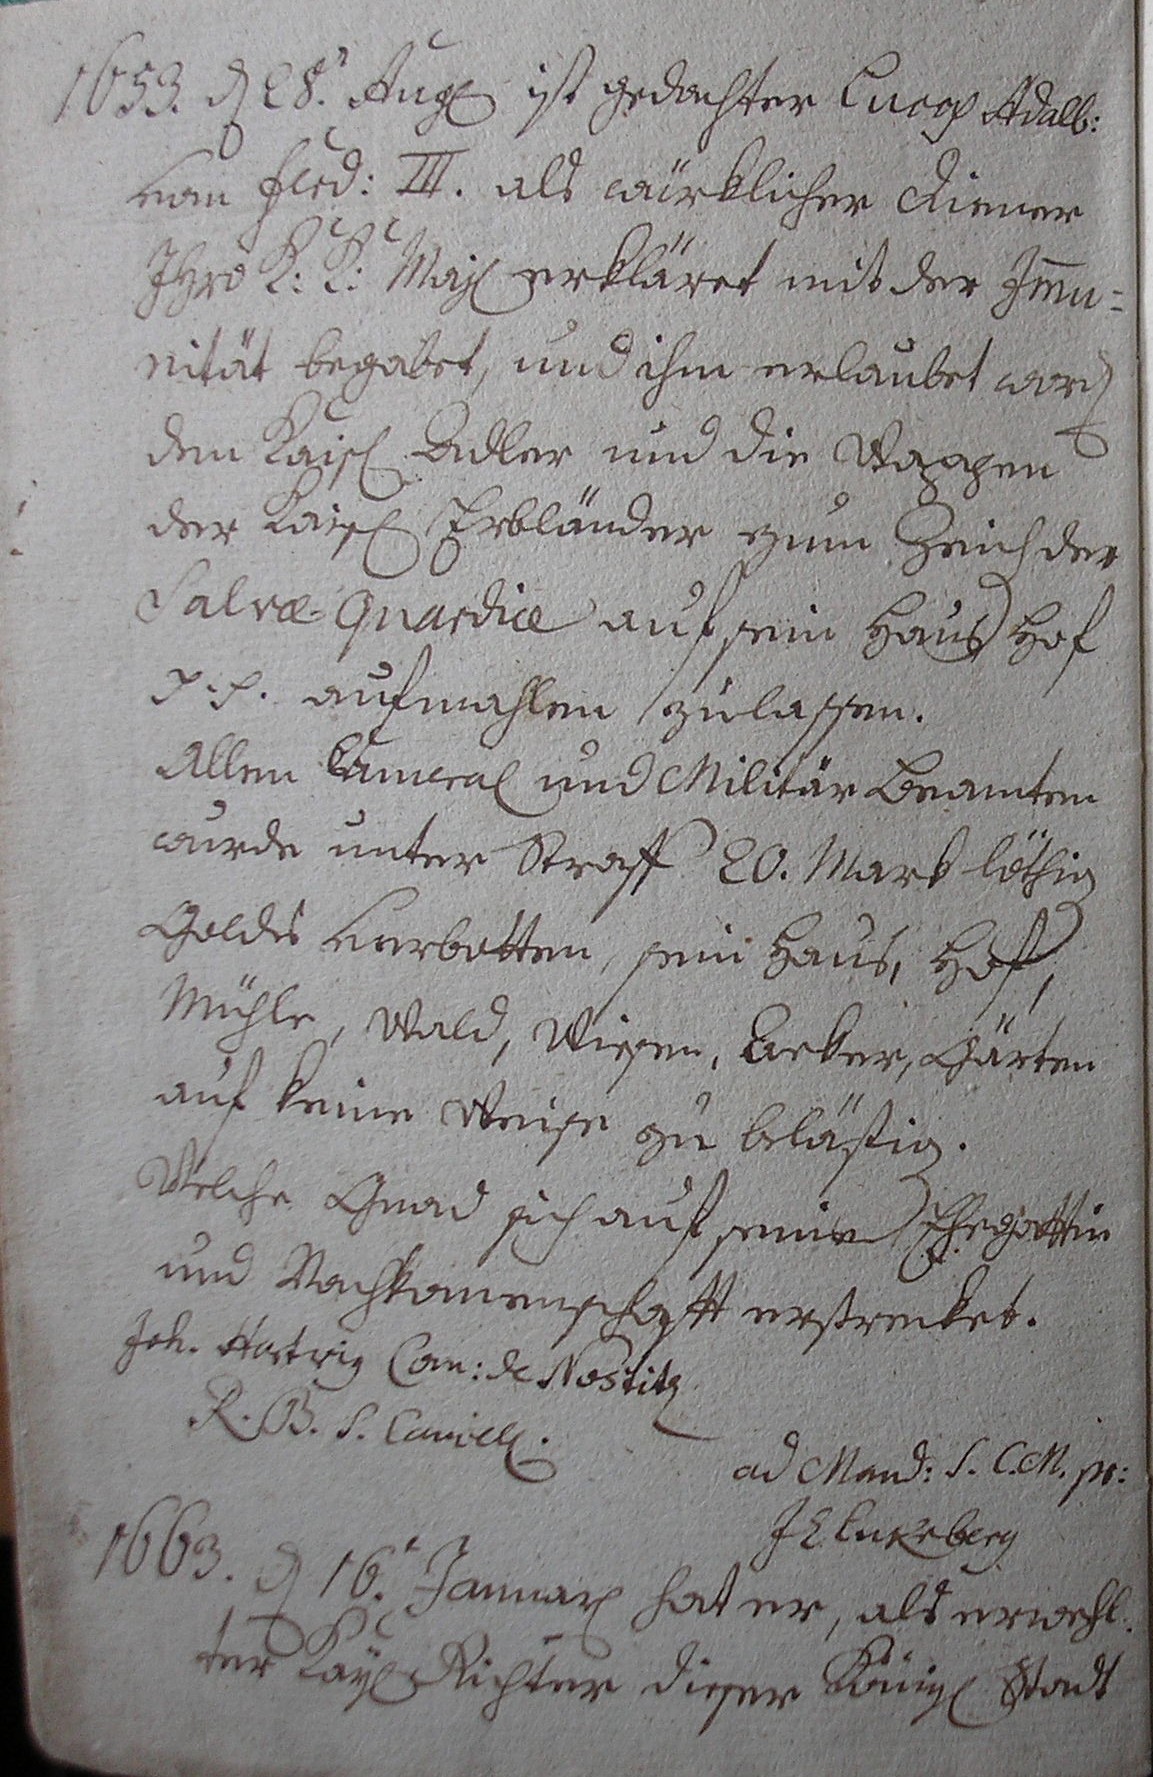 1653. d 28.t Aug ist gedachter Lucas Adalb:
von Ferd: III. als würklicher Diener
Ihro K: K: Maj erkläret mit der Immu=
nität begabet, und ihm erlaubet word
den Kaisl Adler und die Wappen
der Kaisl Erbländer zum Zeich der
Salvæ Quardiæ auf sein Haus, Hof
aufmahlen zulassen.
Allen Cameral und Militär Beamten
wurde unter Straff 20. Mark löthig
Goldes verbotten, sein Haus, Hof,
Mühle, Wald, Wiesen, Aecker, Gärten
auf keine Weise zu belästig.
Welche Gnad sich auf seine Ehegattin
und Nachkomenschafft erstrecket.
Joh. Hartwig Com: de Nostitz
R. B. S. Cancell.
ad Mand: S. C. M. pr:
1663. d 16.t Januar hat er, als erwehl=
ter Kayl Richter dieser Königl Stadt